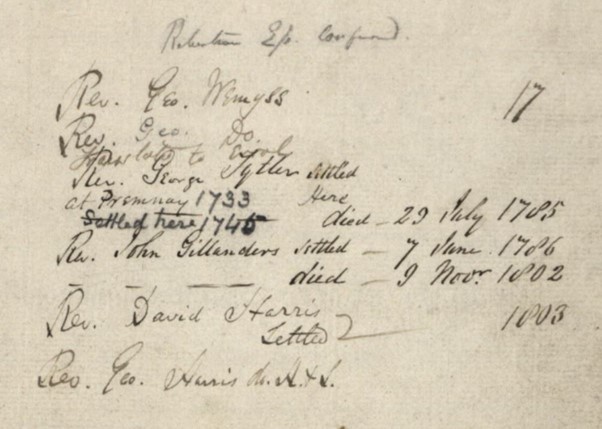 Robertson Ep. Confirmed.
Rev. Geo. Wemyss 17
Rev. Geo. Do.
to Errol
Rev. George Tytler settled
at Premnay 1733 Here
Settled here 1745 died - 29 July 1785
Rev. John Gillanders settled - 7 June 1786
- - - died - 9 Novr 1802
Rev. David Harris 1803
Settled
Rev. Geo. Harris